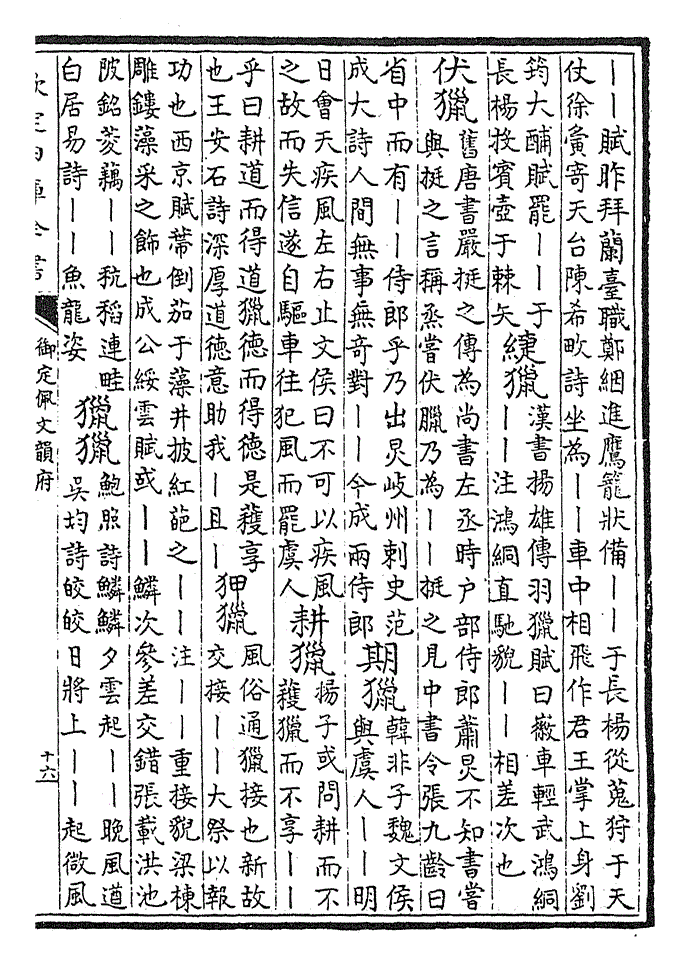 ——賦昨拜蘭臺職鄭絪進鷹籠狀備——于長楊從蒐狩于天
仗徐夤寄天台陳希畋詩坐為——車中相飛作君王掌上身劉
筠大酺賦罷——于
長楊投賓壺于棘矢
緁獵
漢書揚雄傳羽獵賦曰徽車輕武鴻絧
——注鴻絧直馳貌——相差次也
伏獵
舊唐書嚴挺之傳為尚書左丞時户部侍郎蕭炅不知書嘗
與挺之言稱烝嘗伏臘乃為——挺之見中書令張九齡曰
省中而有——侍郎乎乃出炅岐州刺史范
成大詩人間無事無奇對——今成兩侍郎
期獵
韓非子魏文侯
與虞人——明
日會天疾風左右止文侯曰不可以疾風
之故而失信遂自驅車往犯風而罷虞人
耕獵
揚子或問耕而不
穫獵而不享——
乎曰耕道而得道獵德而得德是穫享
也王安石詩深厚道德意助我—且—
狎獵
風俗通獵接也新故
交接——大祭以報
功也西京賦蔕倒茄于藻井披紅葩之——注——重接貌梁棟
雕鏤藻采之飾也成公綏雲賦或——鱗次參差交錯張載洪池
陂銘菱藕——秔稻連畦
白居易詩——魚龍姿
獵獵
鮑照詩鱗鱗夕雲起——晚風遒
吳均詩皎皎日將上——起微風
欽定四庫全書
御定佩文韻府
十六